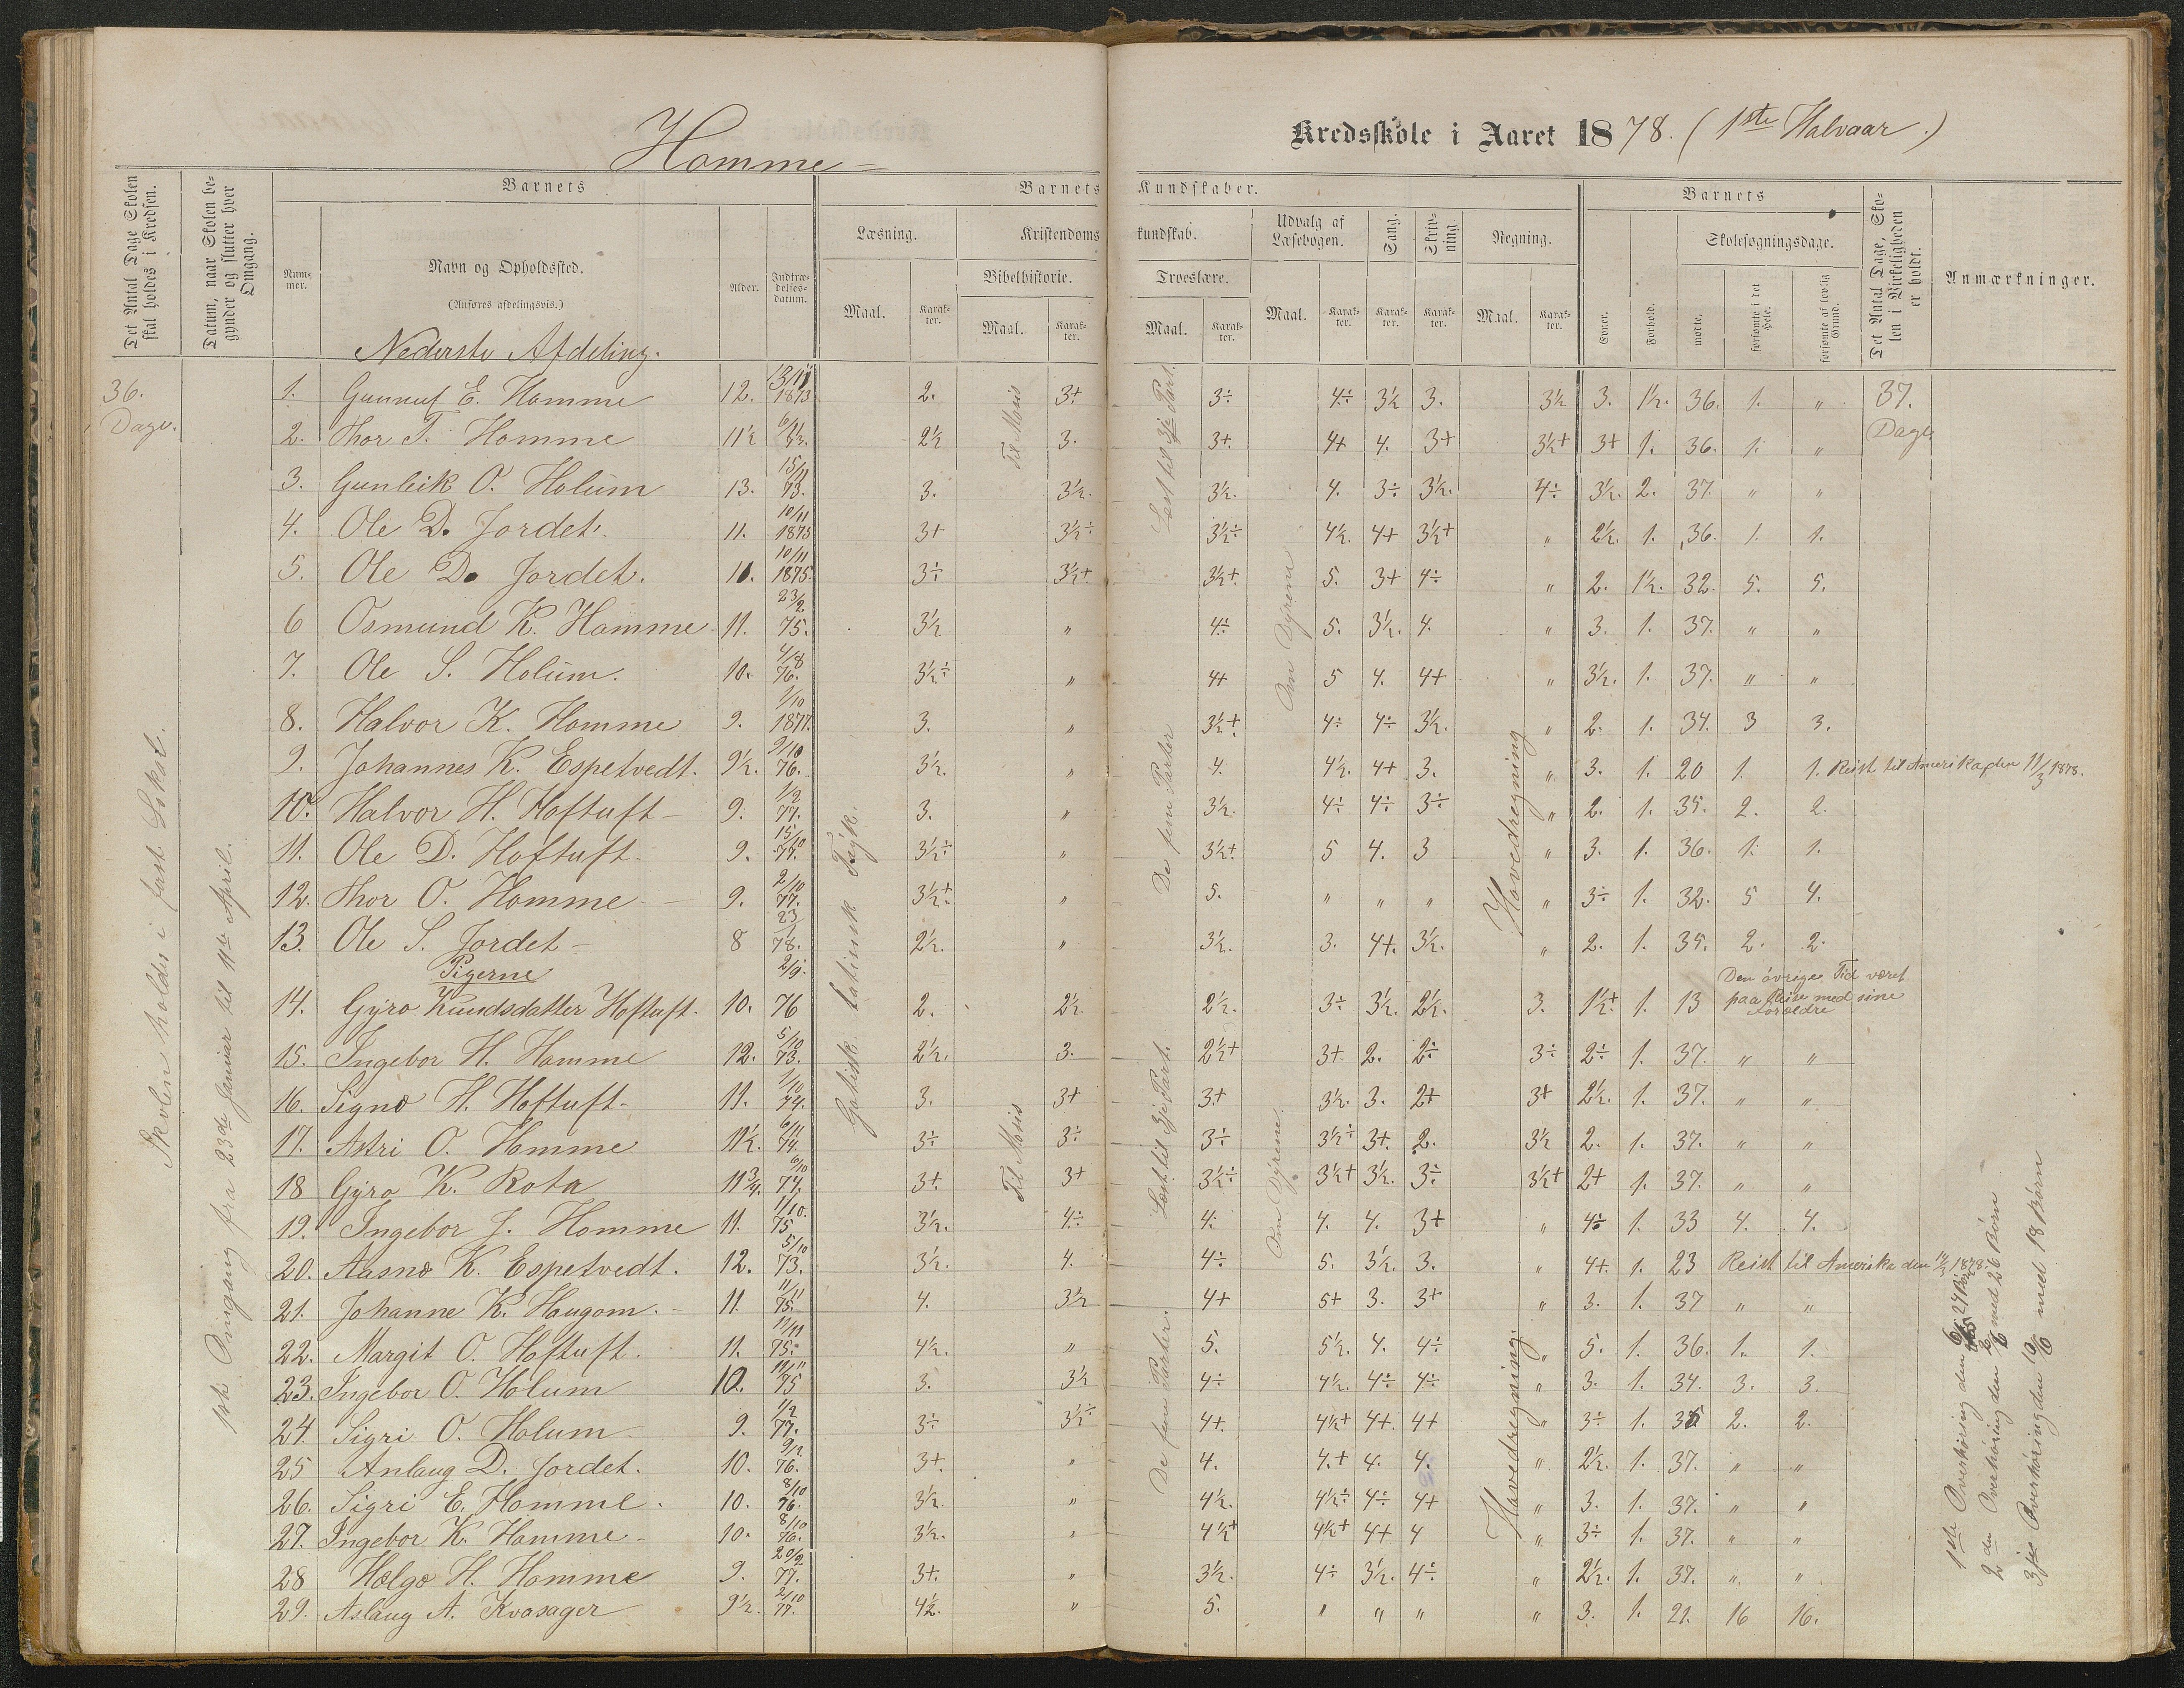 Homme
Kredsskole i Aaret 1878. (1ste Halvaar.)
Det Antal Dage Skolen skal holdes i Kredsen.
Datum, naar Skolen begynder og slutter hver Omgang.
Barnets
Nummer.
Navn og Opholdssted.
(Anføres afdelingsvis.)
Alder.
Indtrædelsesdatum.
Barnets Kundskaber.
Læsning.
Maal. Karakter.
Kristendomskundskab.
Bibelhistorie.
Maal. Karakter.
Troeslære.
Maal. Karakter.
Udvalg af Læsebogen.
Maal. Karakter.
Sang. Karakter.
Skrivning Karakter.
Regning.
Maal. Karakter.
Barnets
Evner. Forhold.
Skolesøgningsdage.
mødte. forsømte i det Hele. forsømte af lovlig Grund.
Det Antal Dage, Skolen i Virkeligheden er holdt.
Anmærkninger.
Nederste Afdeling.
36. Dage.
Skolen holdes i fast Lokal.
1ste Omgang fra 23de Januar til 11te April.
Gotisk. latinsk Tryk.
Til Mosis
Læst til 3je Part.
De fem Parter
Om Dyrene
Hovedregning
37. Dage
1. Gunnuf E. Homme 12. 13/11 1873 2. 3+ 3÷ 4÷ 3½ 3. 3½ 3. 1½. 36. 1. "
2. Thor T. Homme 11½ 6/11 73. 2½ 3. 3+. 4+ 4. 3+ 3½+ 3+ 1. 36. 1. "
3. Gunleik O. Holum 13. 15/11 73. 3. 3½. 3½. 4. 3÷ 3½. 4÷ 3½. 2. 37. " "
4. Ole D. Jordet. 11. 10/11 1875 3+ 3½÷ 3½÷ 4½. 4+ 3½+ " 2½. 1. 36. 1. 1.
5. Ole D. Jordet. 10/11 1875. 3÷ 3½+ 3½+. 5. 3+ 4÷ " 2. 1½. 32. 5. 5.
6 Osmund K. Homme 11. 23/2 75. 3½ " 4÷ 5. 3½. 4. " 3. 1. 37. " "
7. Ole S. Holum. 10. 4/8 76. 3½÷ " 4+ 5 4. 4+ " 3½. 1. 37. " "
8. Halvor K. Homme 9. 1/10 1877. 3. " 3½+ 4÷ 4÷ 3½. " 2. 1. 34. 3 3.
9. Johannes K. Espetvedt. 9½. 9/10 76. 3½. " 4. 4½. 4+ 3. " 3. 1. 20 1. 1. Reist til Amerika den 11/3 1878.
10. Halvor H. Hoftuft 9. 1/2 77. 3. " 3½. 4÷ 4÷ 3÷ " 2. 1. 35. 2. 2.
11. Ole D. Hoftuft 9. 15/10 77. 3½÷ " 3½+ 5 4. 3 " 3. 1. 36. 1. 1.
12. Thor O. Homme 9. 2/10 77. 3½+ " 5. " " " " 3÷ 1. 32. 5 4.
13. Ole S. Jordet 8 23/1 78. 2½. " 3½. 3. 4+. 3½. " 2. 1. 35. 2. 2.
Pigerne
14. Gyro Knudsdatter Hoftuft. 10. 2/9. 76 2. 2½ 2½. 3÷ 3½. 2½. 3. 1½+ 1. 13 Den övrige Tid været paa Reise med sine Forældre
15. Ingebor H. Homme 12. 5/10 73. 2½. 3. 2½+ 3+ 2. 2÷ 3÷ 2÷ 1. 37. " "
16. Signe H. Hoftuft 11. 1/10 74. 3. 3+ 3+ 3½. 3. 2+ 3+ 2½. 1. 37. " "
17. Astri O. Homme 11½. 6/11 74. 3÷ 3÷ 3÷ 3½÷ 3+. 2. 3½ 2. 1. 37. " "
18 Gyro K. Rota 11¾. 6/10 74. 3+. 3+ 3½÷ 3½+ 3½. 3÷ 3½+ 2+ 1. 37. " "
19. Ingebor J. Homme 11. 1/10. 75 3½. 4÷ 4. 4. 4. 3+ " 4÷ 1. 33 4. 4.
20. Aasne K. Espetvedt. 12. 5/10 73. 3½. 4. 4÷ 5. 3½. 3. " 4+. 1. 23 Reist til Amerika den 11/3 1878.
21. Johanne K. Haugom. 11. 11/11 75. 4. 3½ 4+ 5+ 3. 3+ " 3. 1. 37 " "
22. Margit O. Hoftuft. 11. 11/11 75. 4½. " 5. 5½. 4. 4÷ " 5. 1. 36. 1. 1.
23. Ingebor O. Holum 10. 11/11 75 3. 3½ 4÷ 4½. 4÷ 4÷ " 3. 1. 34. 3. 3.
24 Sigri O. Holum 9. 1/2 77. 3÷ 3½÷ 4+. 4½+ 4+. 4+ " 3÷ 1. 35 2. 2.
25 Anlaug D. Jordet. 10. 9/2 76. 3+. " 4. 4.+ 4. 4. " 2½. 1. 37. " "
26. Sigri E. Homme. 10. 8/10 76. 3½. " 4½. 4½÷ 4÷ 4+ " 3. 1. 37. " "
27. Ingebor K. Homme 10. 8/10 76. 3½. " 4½+ 4½+ 4+ 4 " 3÷ 1. 37. " "
28 Helge H. Homme 9. 20/2 77. 3+. " 3½. 4÷ 3½. 4÷ " 2½. 1. 37. " "
29. Aslaug A. Kvasager 9½. 2/10 77. 4½. " 5. " " " " 3. 1. 21. 16 16.
Til Mosis
Læst til 3je Part.
De fem Parter.
Om Dyrene.
Hovedregning.
1ste Overhøring den
2den Overhøring den med 26 Børn
3je Overhøring den 10/6 med 18 Børn